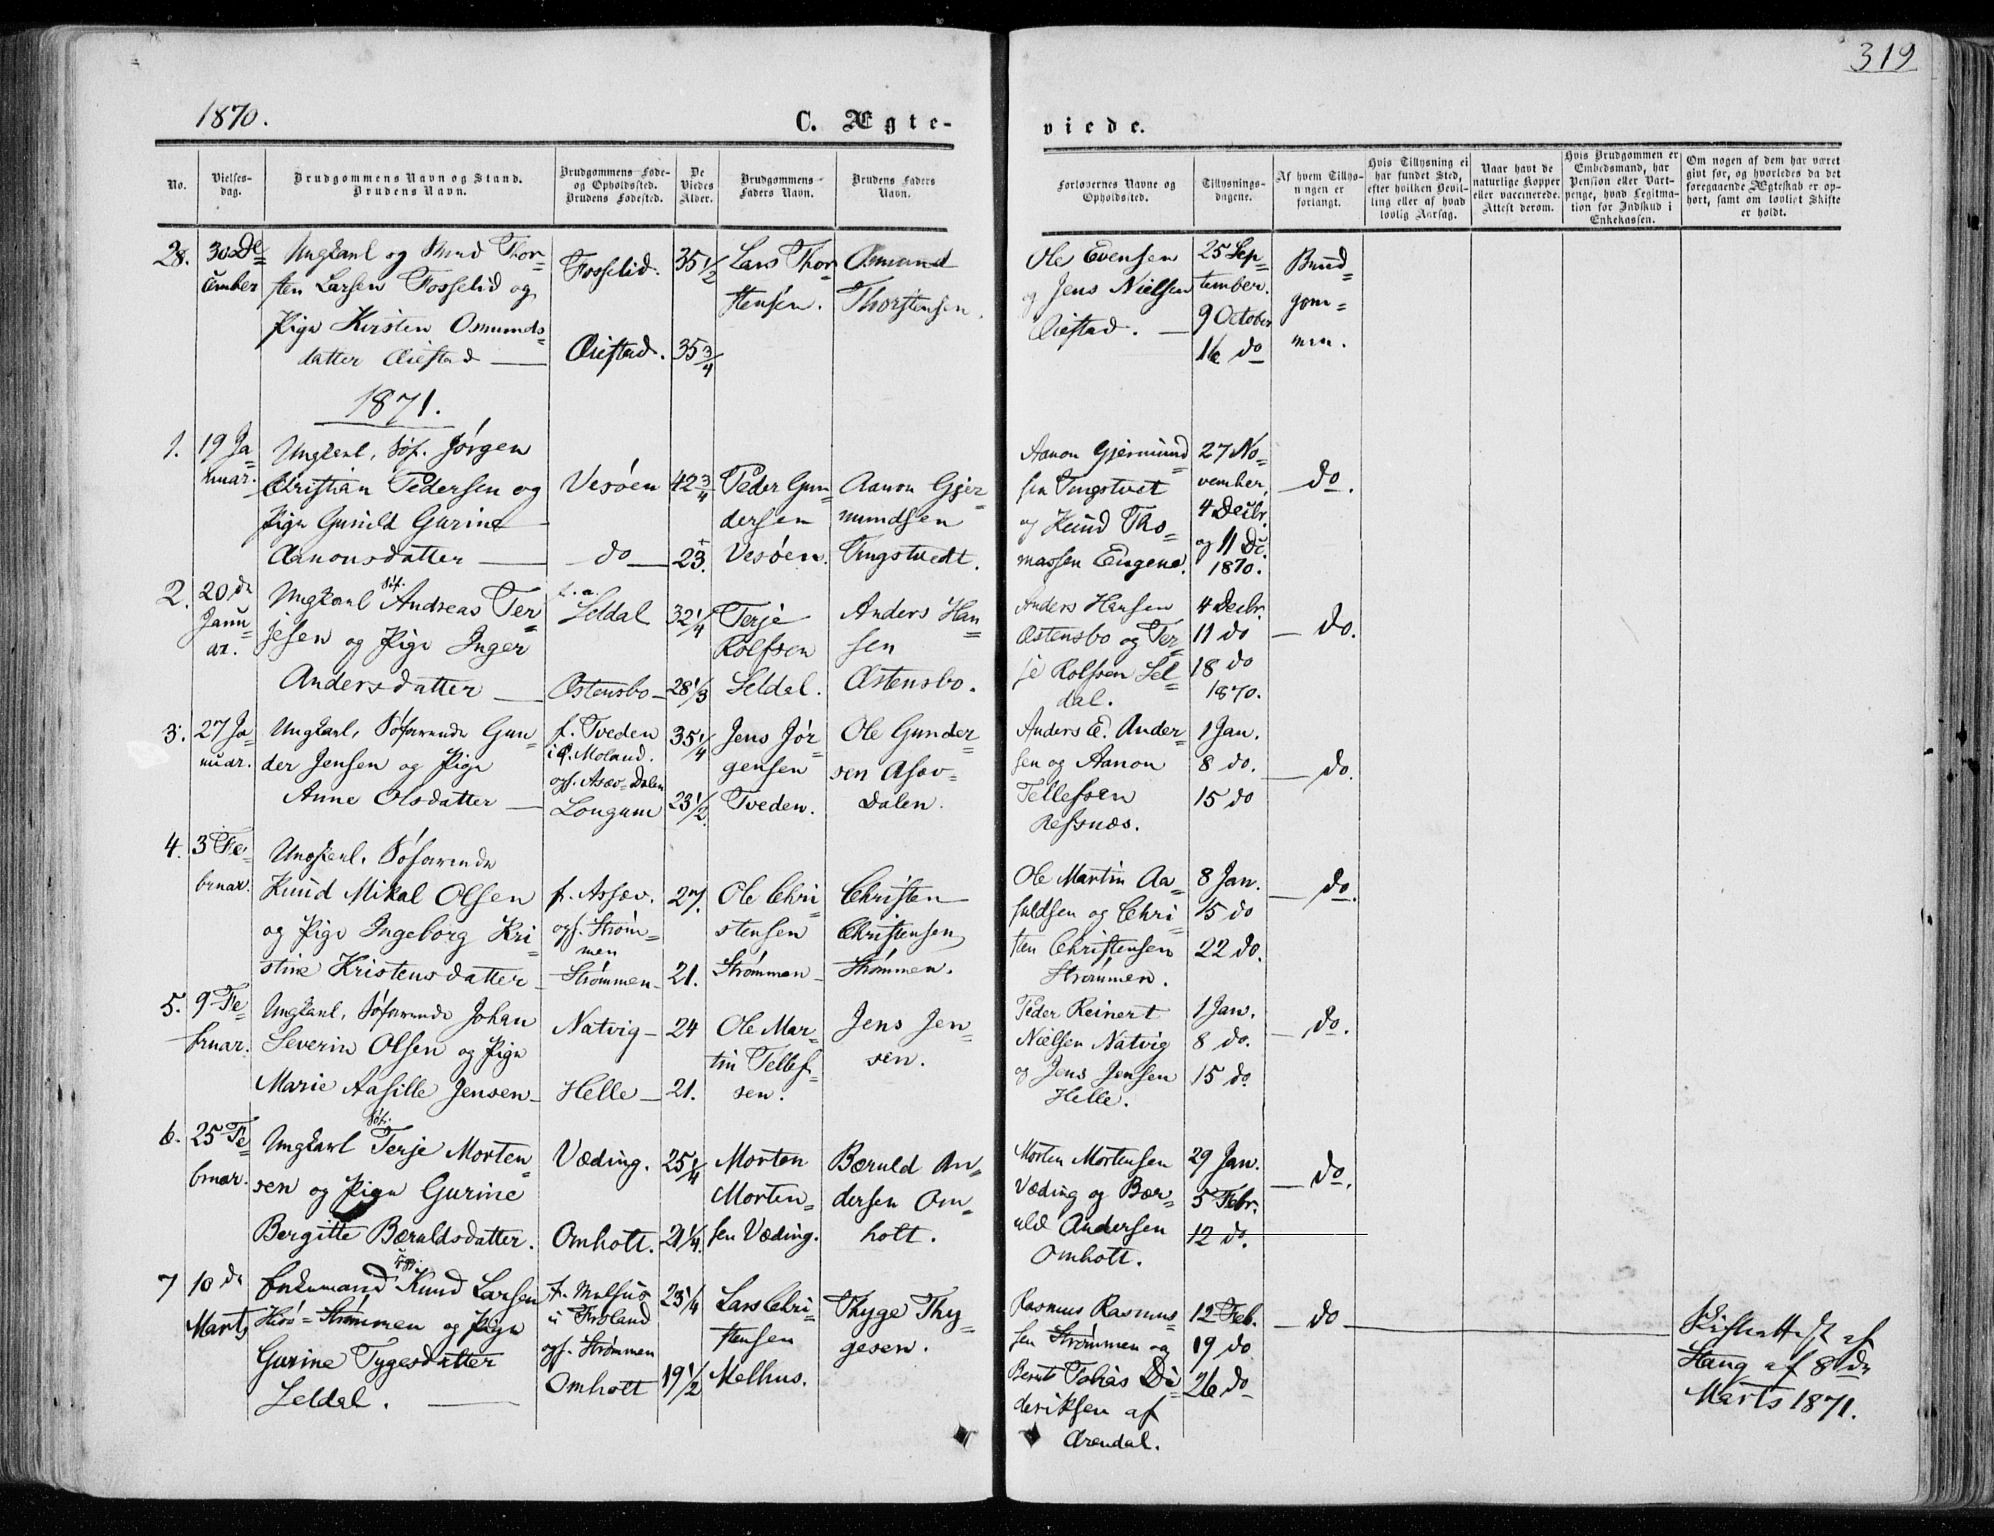 319
1870.
C. Ægte-
viede.
No.
Vielses-
dag.
Brudgommens Navn og Stand.
Brudens Navn.
Brudgommens Føde-
og Opholdssted.
Brudens Fødested.
De
Viedes
Alder.
Brudgommens
Faders Navn.
Brudens Faders
Navn.
Forlovernes Navne og
Opholdssted.
Tillysnings-
dagene.
Af hvem Tillys-
ningen er
forlangt.
Hvis Tillysning ei
har fundet Sted,
efter hvilken Bevil-
ling eller af hvad
lovlig Aarsag.
Naar havt de
naturlige Kopper
eller vaccinerede.
Attest derom.
Hvis Brudgommen er
Embedsmand, har
Pension eller Vart-
penge, hvad Legitima-
tion for Indskud i
Enkekassen.
Om nogen af dem har været
gift før, og hvorledes da det
foregaaende Ægteskab er op-
hørt, samt om lovligt Skifte
er holdt.
28.
30 De
cember
Ungkarl og Thor-
sten Larsen Fosselid og
Pige Kirsten Osmunds-
datter Øiestad
Fosselid.
Øiestad.
35 1/2
35 3/4
Lars Thor-
stensen.
Osmund
Thorstensen.
Ole Evensen
og Jens Nielsen
Øiestad.
25 Sep-
tember.
9 October
16 do
Brud-
gom-
men.
1871.
1.
19 Ja-
nuar.
Ungkarl, Søf. Jørgen
Christian Pedersen og
Pige Gunild Gurine
Aanonsdatter
Vesøen
do
42 3/4
23.
Peder Gun-
dersen
Vesøen.
Aanon Gjer-
mundsen
Tingstvedt.
Aanon Gjermund-
sen Tingstvet
og Knud Tho-
massen Eugene.
27 No-
vember,
4 Decbr.
og 11 Dc.
1870.
do.
2.
20 de
Janu-
ar.
Ungkarl Søf. Andreas Ter-
jesen og Pige Inger
Andersdatter
f. a.
Seldal
Østensbo
32 1/4
28 1/3
Terje
Rolfsen
Seldal.
Anders Han-
sen
Østensbo.
Anders Hansen
Østensbo og Ter-
je Rolfsen Sel-
dal.
4 Decbr.
11 do
18 do
1870.
do.
3.
27 Ja-
nuar.
Ungkarl, Søfarende Gun-
der Jensen og Pige
Anne Olsdatter
f. Tveden
i Ø. Moland.
opf. Asæv-Dalen
Longum
35 1/4
23 1/2.
Jens Jør-
gensen
Tveden.
Ole Gunder-
sen Asæv-
dalen.
Anders E. Ander-
sen og Aanon
Tellefsen
Refsnæs.
1 Jan.
8 do.
15 do
do.
4.
3 Fe-
bruar.
Ungkarl, Søfarende
Knud Mikal Olsen
og Pige Ingeborg Kri-
stine Kristensdatter
f. Assæv.
opf. Strøm-
men
Strømmen
27.
21.
Ole Chri-
stensen
Strømmen
Christen
Christensen
Strømmen.
Ole Martin Aa-
suldsen og Chri-
sten Christensen
Strømmen.
8 Jan.
15 do
22 do.
do.
5.
9 Fe-
bruar.
Ungkarl, Søfarende Johan
Severin Olsen og Pige
Marie Aasille Jensen
Natvig
Helle
24
21.
Ole Mar-
tin Tellef-
sen.
Jens Jen-
sen.
Peder Reinert
Nielsen Natvig
og Jens Jensen
Helle.
1 Jan.
8 do.
15 do.
do.
6.
25 Fe-
bruar.
Ungkarl Søf. Terje Morten-
sen og Pige Gurine
Bergitte Bæruldsdatter.
Væding.
Omholt.
25 1/4
21 1/4.
Morten
Morten-
sen Væding.
Bæruld An-
dersen Om-
holt.
Morten Mortensen
Væding og Bær-
uld Andersen
Omholt.
29 Jan.
5 Febr.
12 do.
do.
7
10 de
Marts
Enkemand Knud Larsen
Hisø-Strømmen og Pige
Gurine Tygesdatter
Seldal.
i Froland
opf. Strømmen
Omholt
25 1/4
19 1/2
Lars Chri-
stensen
Melhus.
Thyge Thy-
gesen.
Rasmus Rasmus-
sen Strømmen og
Bernt Tobias Di-
deriksen af
Arendal.
12 Feb.
19 do
26 do
do
Skifteattest af
Stang af 8 de
Marts 1871.